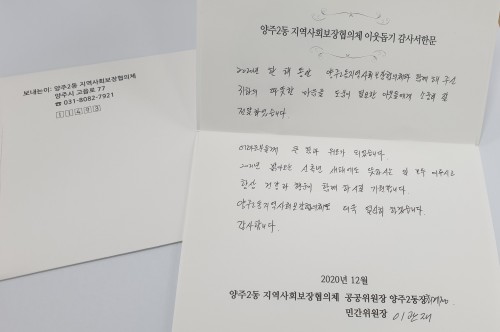 보내는이: 양주2동 지역사회보장협의체
양주시 고읍로 77
☎ 031-8082-7921
11493
양주2동 지역사회보장협의체 이웃돕기 감사서한문
2020년 한 해 동안 양주2동지역사회보장협의체와 함께 해 주신
귀하의 따뜻한 마음을 도움이 필요한 이웃들에게 소중히 잘
전달하였습니다.
어려운 분들께 큰 힘과 위로가 되었습니다.
2021년 신축년 새해에도 하시는 일 모두 이루시고
항상 건강과 행운이 함께 하시길 기원합니다.
양주2동지역사회보장협의체도 더욱 열심히 하겠습니다.
감사합니다.
2020년 12월
양주2동 지역사회보장협의체 공공위원장 양주2동장
민간위원장